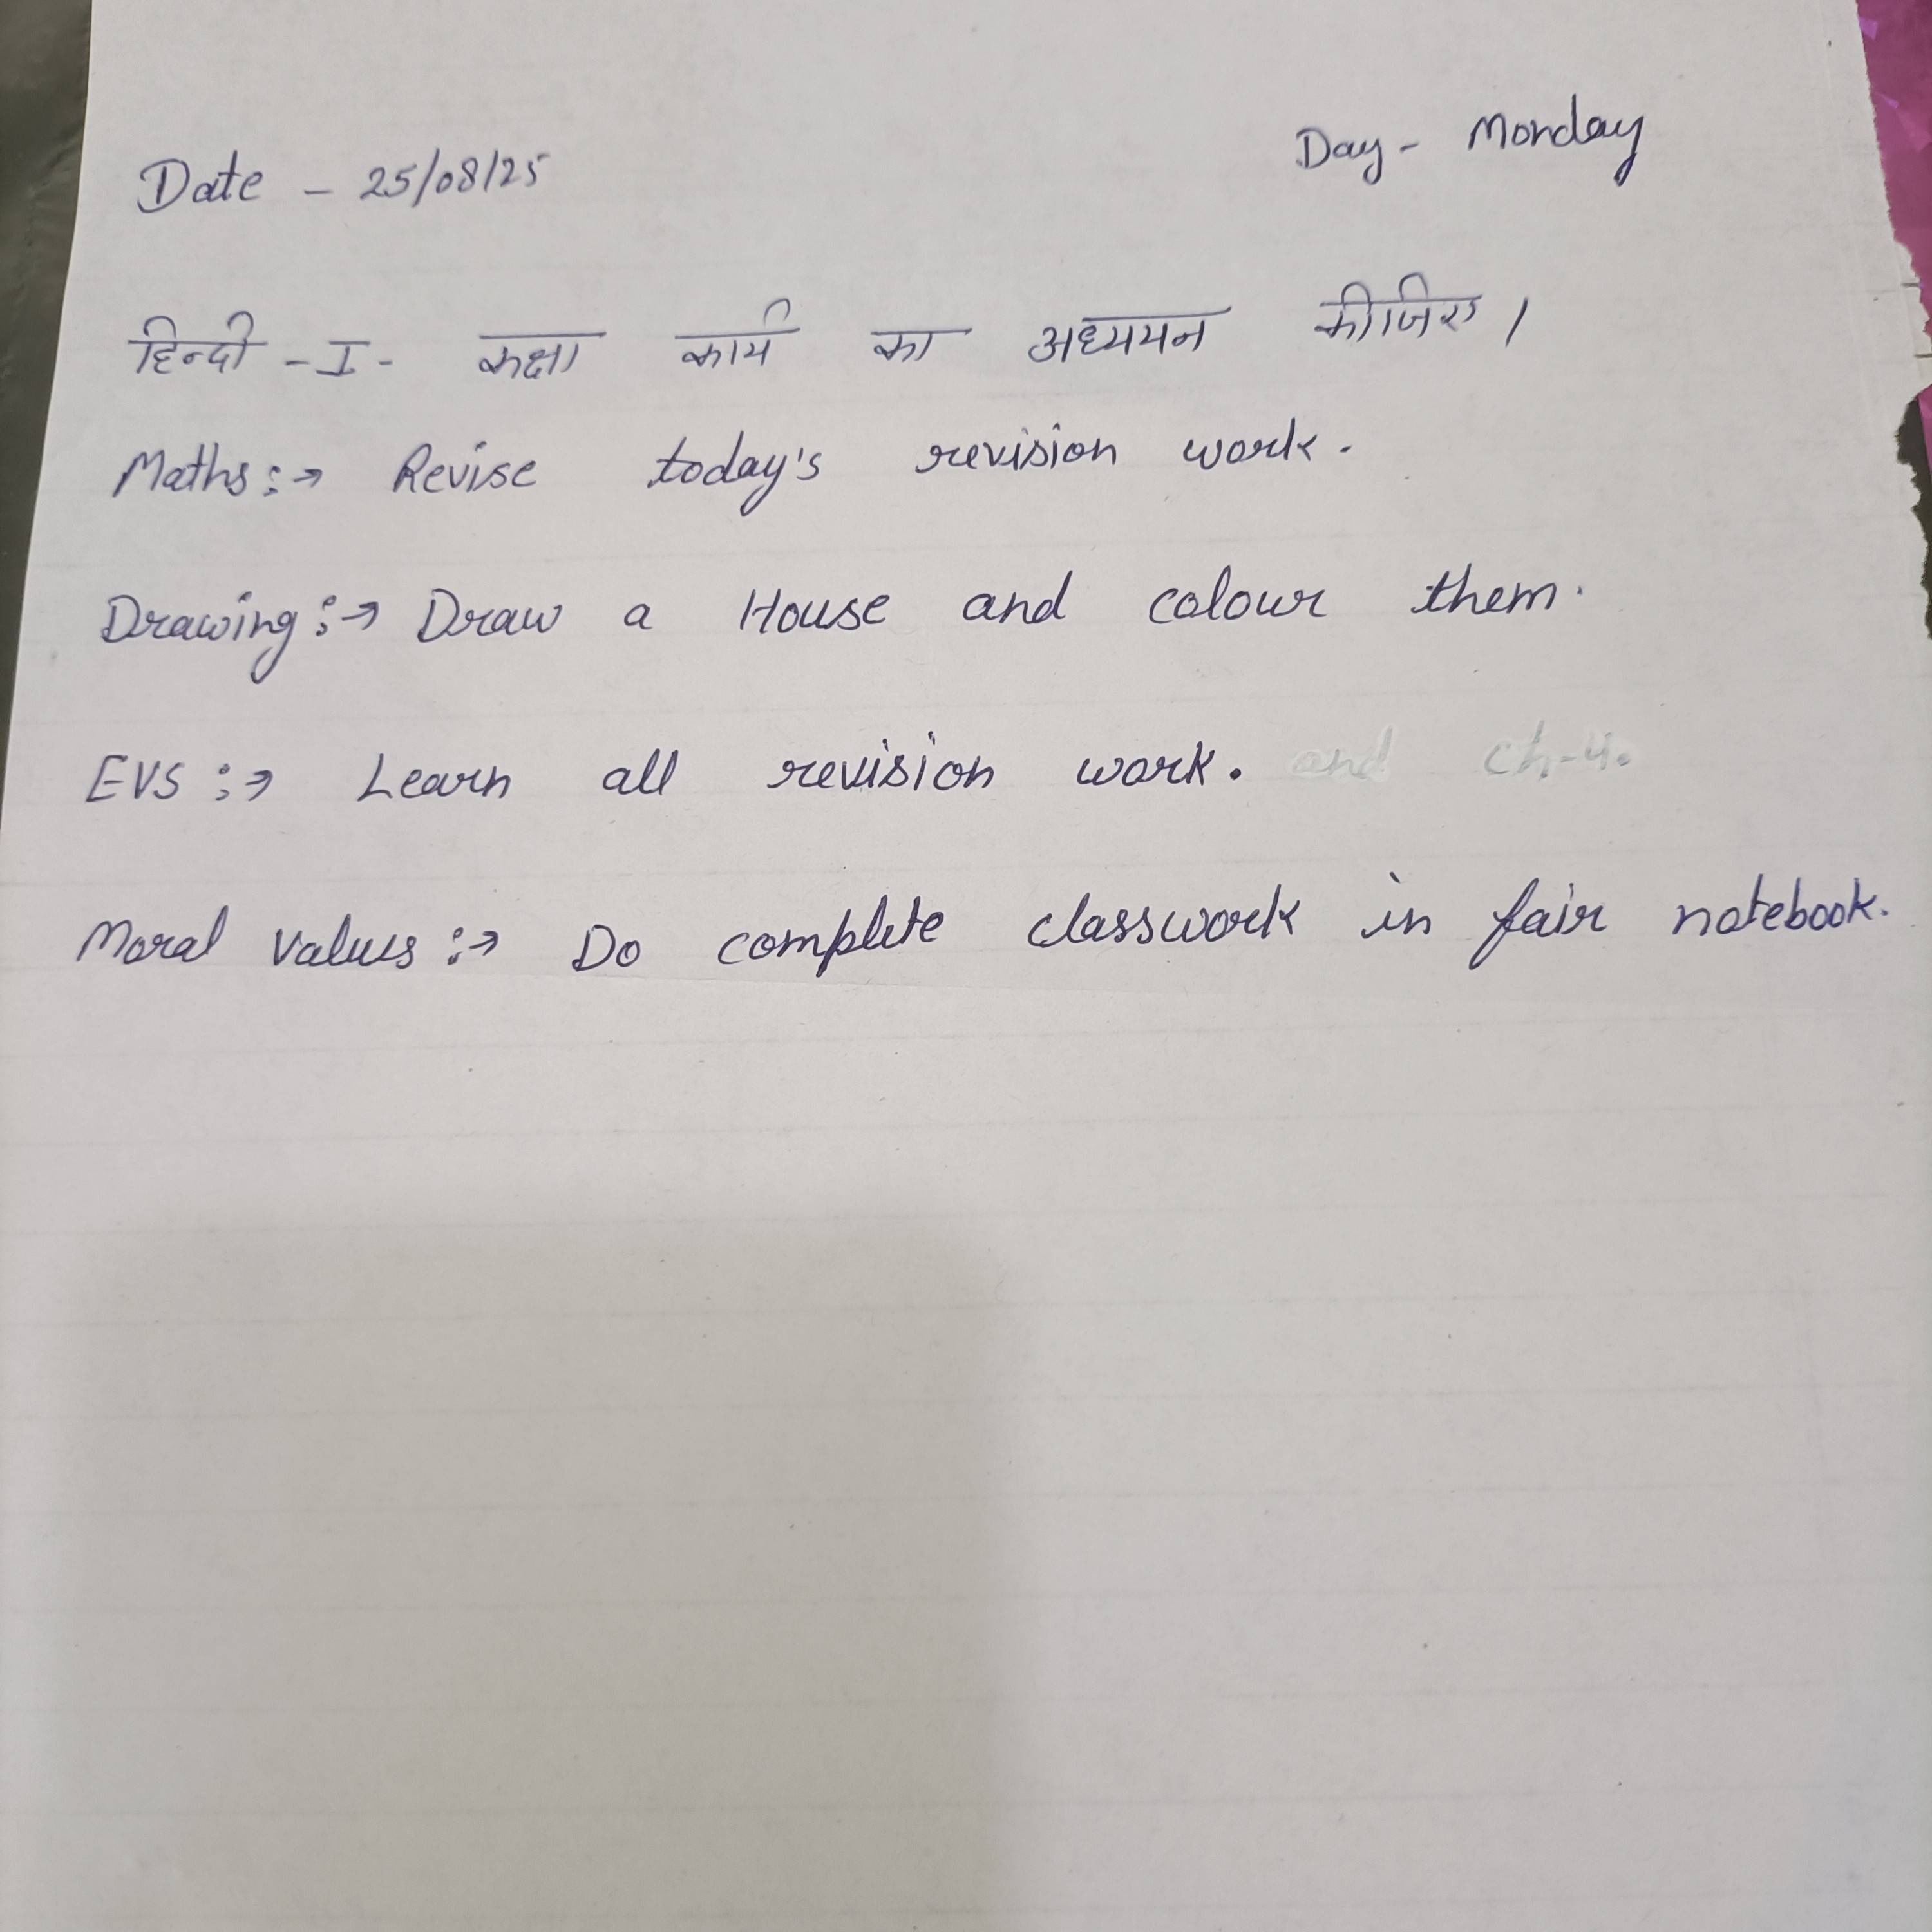 Day - Monday
Date - 25/08/25
हिन्दी - I - कक्षा कार्य का अध्ययन कीजिए।
Maths :→ Revise today's revision work.
Drawing :→ Draw a House and colour them.
EVS :→ Learn all revision work. and ch-4.
Moral Values :→ Do complete classwork in fair notebook.